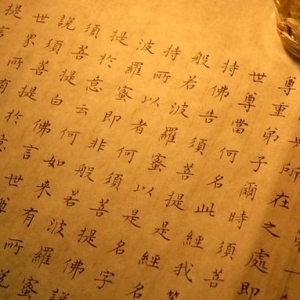 所在之處即
尊重弟子爾時須菩
世尊當何名此經我
持佛告須菩提是經
般若波羅蜜以是名字
持所以者何須菩提佛
波羅蜜即非般若波羅蜜
提於意云何如來有所說
須菩提白佛言世
說須菩提於意
世界所有
提